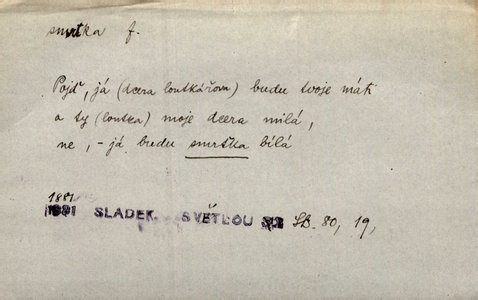 smrtka f.
Pojď, já (dcera loutkářova) budu tvoje máti
a ty (loutka) moje dcera milá,
ne, - já budu smrtka bílá
1881
SLADEK. SVĚTLOU LB. 80, 19,